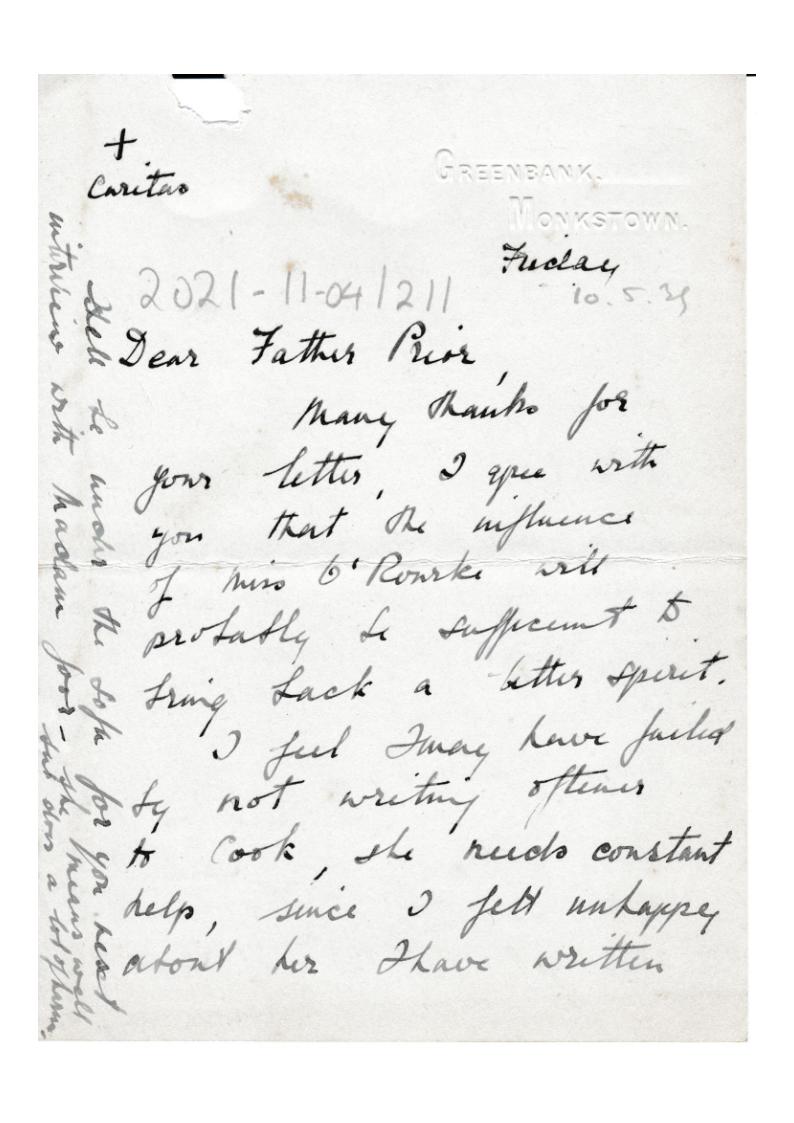 +
Caritas
GREENBANK.
MONKSTOWN.
Friday
2021-11-04/211
Dear Father Prior,
Many thanks for
your letter, I agree with
you that the influence
of Miss O'Rourke will
probably be sufficient to
bring back a better spirit.
I feel I may have failed
by not writing oftener
to Cook, she needs constant
help, since I felt unhappy
about her I have written
be under the sofa for you next
interview with Madam poor – she means well
but does a lot of harm.